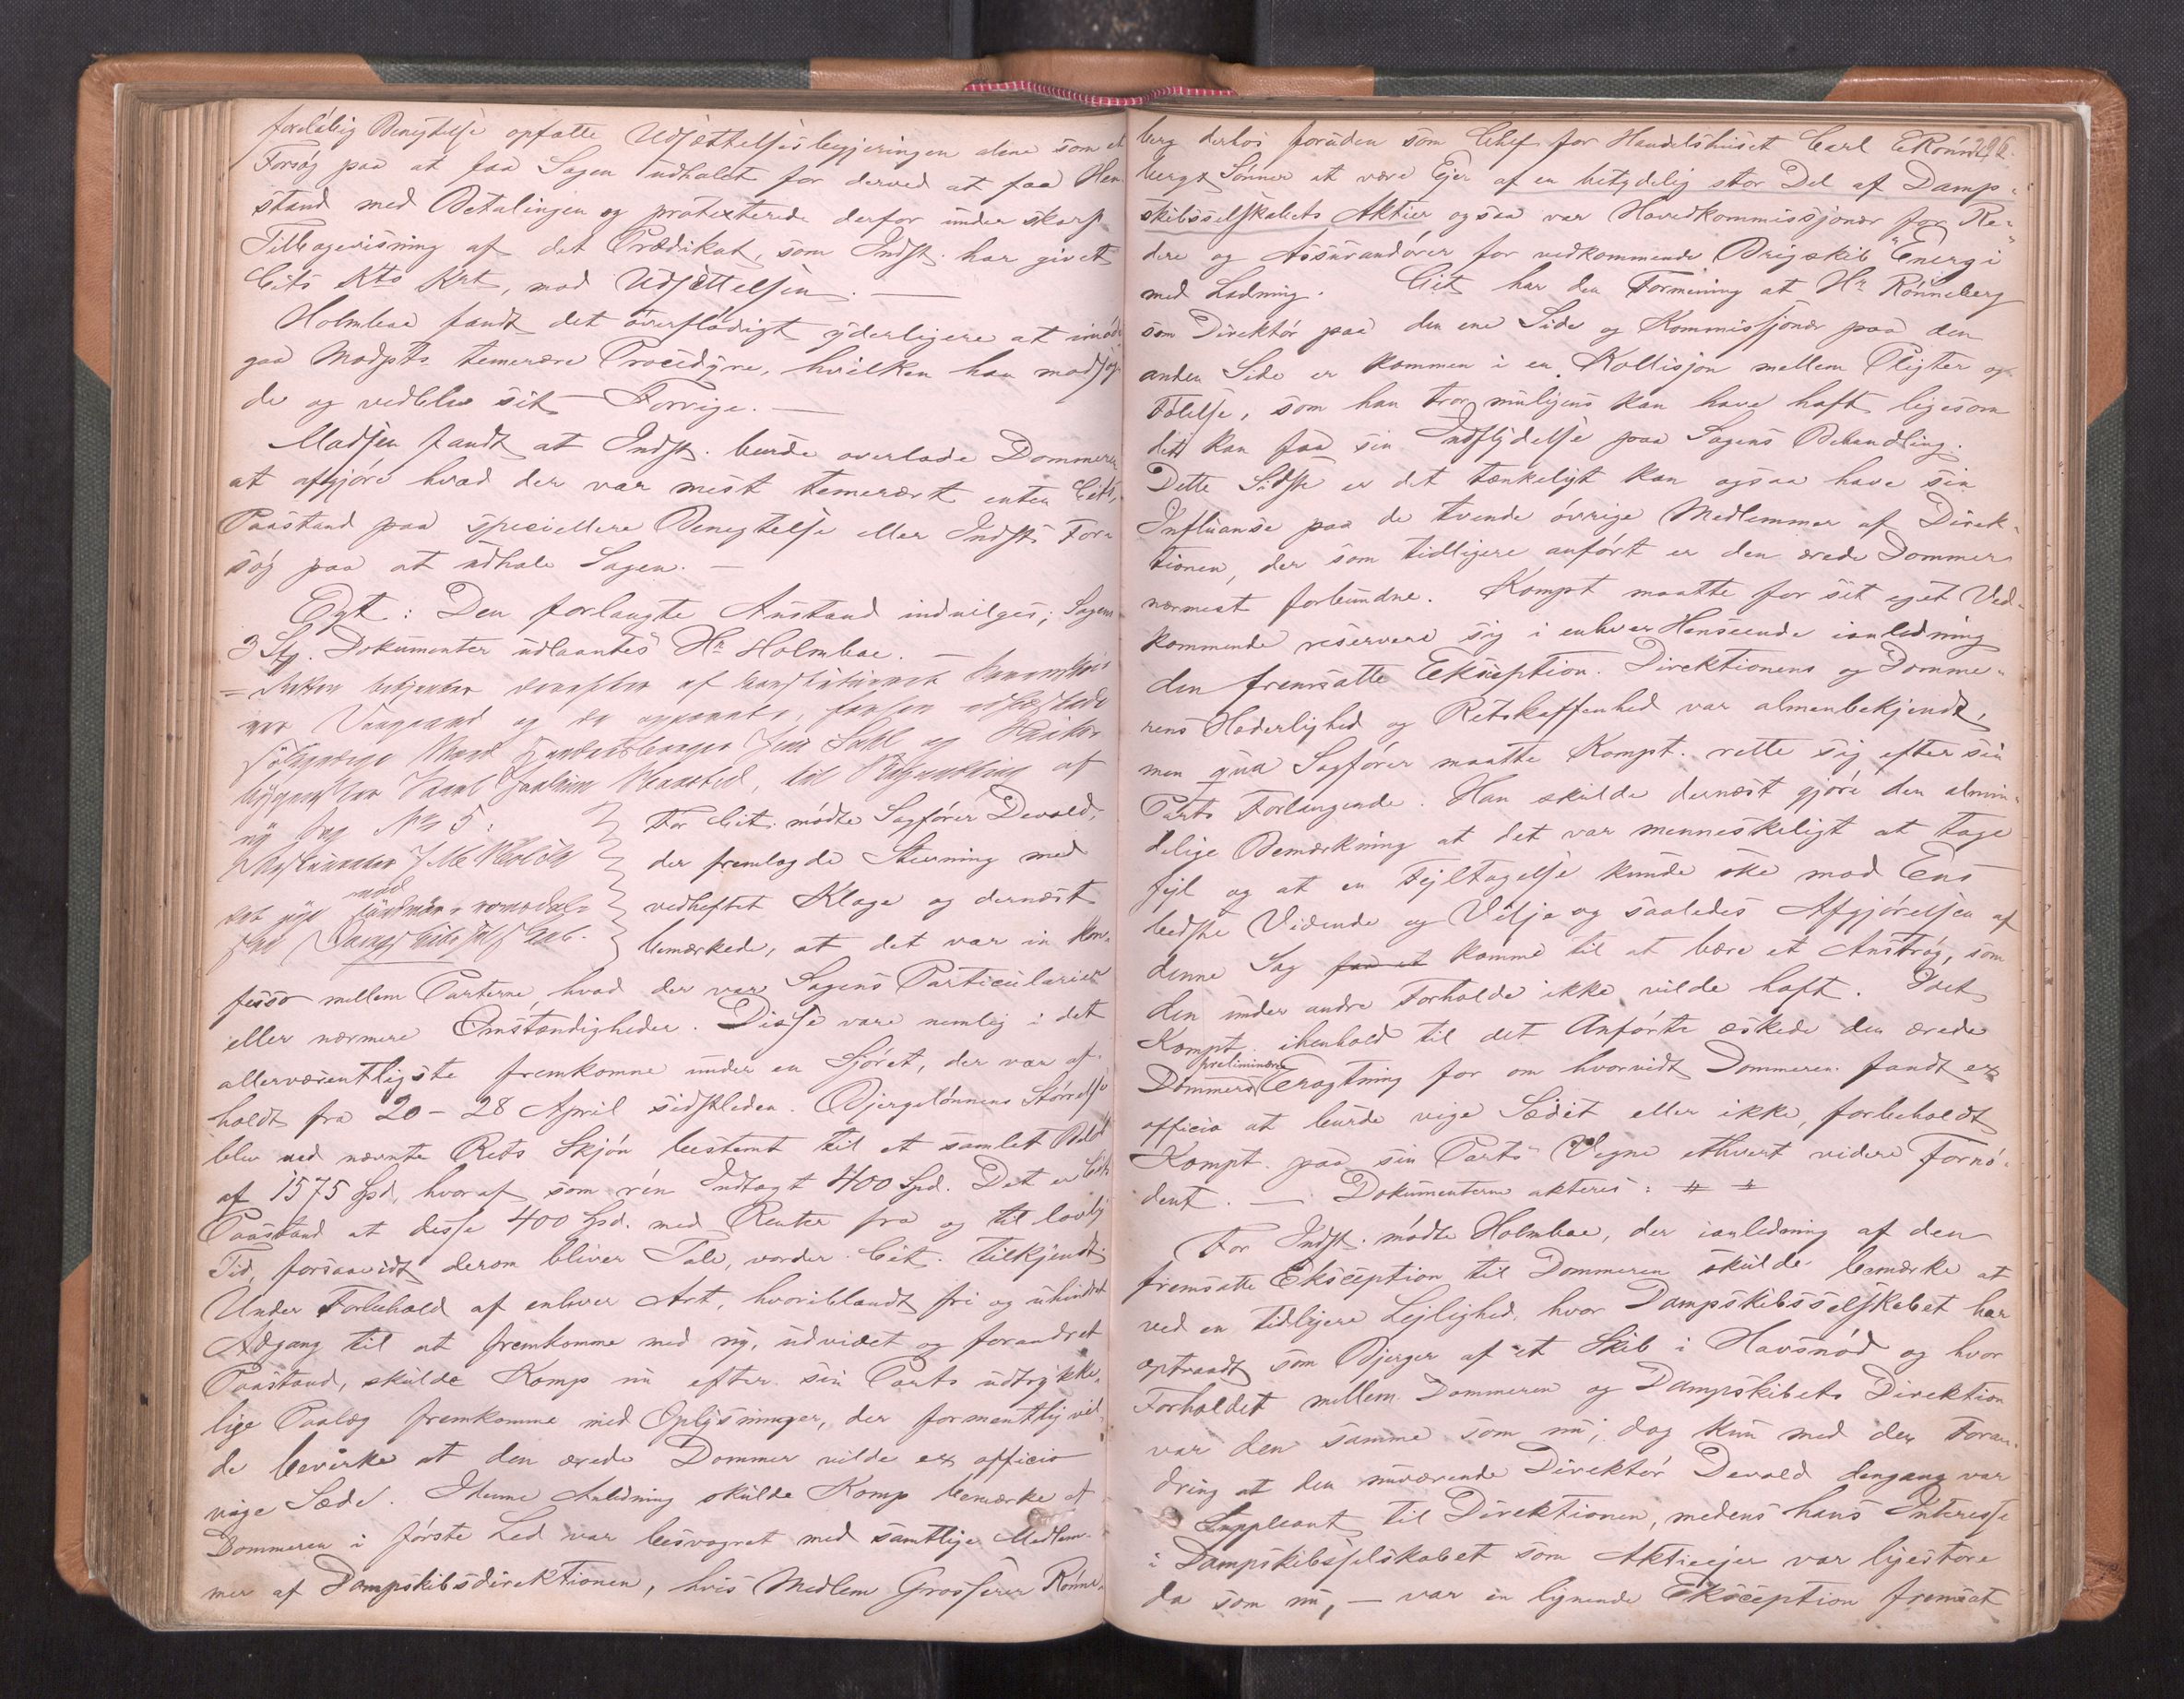 foreløbig Benegtelse opfatte Udsættelsesbegjeringen alene som et
Forsøg paa at faa Sagen udhalet for derved at faa Hen-
stand med Betalingen og protesterede derfor under skarp
Tilbagevisning af det Prædikat, som Indst. har givet
Cits Kto Krt, mod Udsættelsen. —
Holmboe fandt det overflødigt yderligere at imøde
gaa Modpts temerære Procedyre, hvilken han modsag-
de og vedblev sit Forrige. —
Madsen fandt at Indst. burde overlade Dommeren
at afgjøre hvad der var mest temerært enten Cits,
Paastand paa speciellere Benegtelse eller Indsts For-
søg paa at udhale Sagen. —
Egt: Den forlangte Anstand indvilges; Sagens
3 Stk. Dokumenter udlaantes Hr Holmboe. —
= Retten betjentes derefter af
Vaagaard og de opnævnte,
Mænd Jens Dahl og
til Behandling af
ny Sag No 5:
mod
Søndmør- romsdal-
ske Dampskibsselskab.
For Cit. mødte Sagfører Devold,
der fremlagde Stævning med
vedheftet Klage og dernæst
bemærkede, at det var in kon-
fesso mellem Parterne, hvad der var Sagens Particularier
eller nærmere Omstændigheder. Disse vare nemlig i det
allervæsentligste fremkomne under en Sjøret, der var af-
holdt fra 20 – 28 April sidstleden. Bjergelønnens Størrelse
blev ved nævnte Rets Skjøn bestemt til et samlet Beløb
af 1575 Spd, hvoraf som ren Indtægt 400 Spd. Det er Cits
Paastand at disse 400 Spd. med Renter fra og til lovlig
Tid, forsaavidt derom bliver Tale, vorder Cit. tilkjendt.
Under Forbehold af enhver Art, hvoriblandt fri og uhindret
Adgang til at fremkomme med ny, udvidet og forandret
Paastand, skulde Komp nu efter sin Parts udtrykke-
lige Paalæg fremkomme med Oplysninger, der formentlig vil-
de bevirke at den ærede Dommer vilde ex officio
vige Sædet. I denne Anledning skulde Komp bemærke at
Dommeren i første Led var besvogret med samtlige Medlem-
mer af Dampskibsdirektionen, hvis Medlem Grosserer Rønne-
296.
berg derhos foruden som Chef for Handelshuset Carl E Rønne-
bergs Sønner at være Ejer af en betydelig stor Del af Damp-
skibsselskabets Aktier ogsaa var Hovedkommissjonær for Re-
dere og Assurandører for vedkommende Brigskib "Energi"
med Ladning. Cit har den Formening at Hr Rønneberg
som Direktør paa den ene Side og Kommissjonær paa den
anden Side er kommen i en Kollisjon mellem Pligter og
Følelse, som han tror muligens kan have haft ligesom
det kan faa sin Indflydelse paa Sagens Behandling.
Dette Sidste er det tænkeligt kan ogsaa have sin
Influanse paa de tvende øvrige Medlemmer af Direk-
tionen, der som tidligere anført er den ærede Dommer
nærmest forbundne. Kompt maatte for sit eget Ved-
kommende reservere sig i enhver Henseende ianledning
den fremsatte Eksception. Direktionens og Domme-
rens Hæderlighed og Retskaffenhed var almenbekjendt,
men qua Sagfører maatte Kompt. rette sig efter sin
Parts Forlangende. Han skulde dernæst gjøre den almin-
delige Bemærkning at det var menneskeligt at tage
fejl og at en Fejltagelse kunde ske mod Ens
bedste Vidende og Vilje og saaledes Afgjørelsen af
denne Sag faa et komme til at bære et Anstrøg, som
den under andre Forholde ikke vilde haft. Idet
Kompt. ihenhold til det Anførte æskede den ærede
preliminære
Dommers Eragtning for om hvorvidt Dommeren fandt ex
officio at burde vige Sædet eller ikke, forbeholdt
Kompt. paa sin Parts Vegne ethvert videre Fornø-
dent. — Dokumenterne akteres: ⧺ ⧺
For Indst. mødte Holmboe, der ianledning af den
fremsatte Eksception til Dommeren skulde bemærke at
ved en tidligere Lejlighed, hvor Dampskibsselskabet har
optraadt som Bjerger af et Skib i Havsnød og hvor
Forholdet mellem Dommeren og Dampskibets Direktion
var den samme som nu; dog kun med den Foran-
dring at den nuværende Direktør Devold dengang var
Suppleant til Direktionen, medens hans Interesse
i Dampskibsselskabet som Aktieejer var ligestore
da som nu, — var en lignende Eksception fremsat